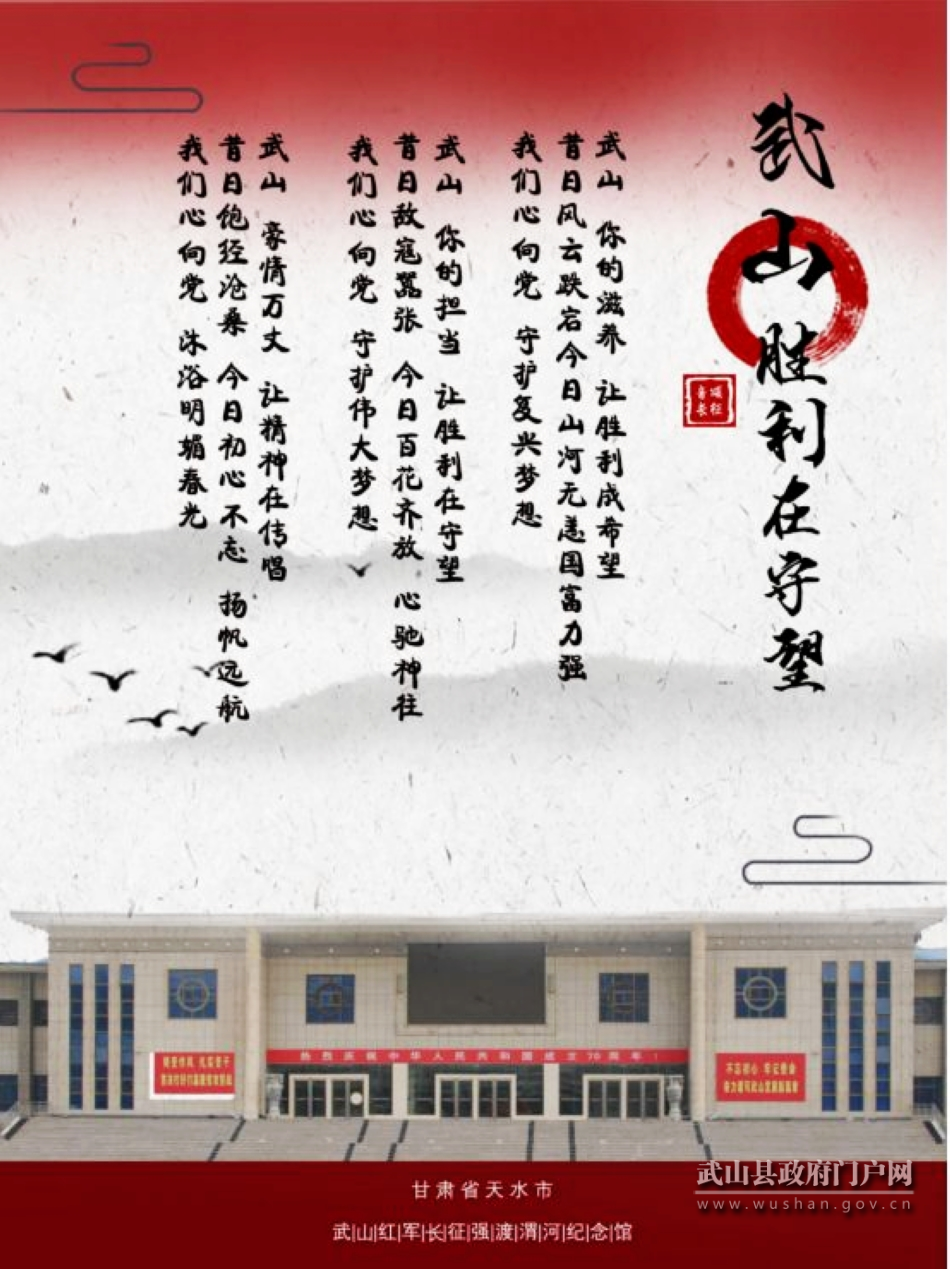 武山胜利在守望
音颂
长征
武山 你的滋养 让胜利成希望
昔日风云跌宕今日山河无恙国富力强
我们心向党 守护复兴梦想
武山 你的担当 让胜利在守望
昔日敌寇嚣张 今日百花齐放 心驰神往
我们心向党 守护伟大梦想
武山 豪情万丈 让精神在传唱
昔日饱经沧桑 今日初心不忘 扬帆远航
我们心向党 沐浴明媚春光
热烈庆祝中华人民共和国成立70周年！
不忘初心 牢记使命
甘肃省天水市
武|山|红|军|长|征|强|渡|渭|河|纪|念|馆
武山县政府门户网
www.wushan.gov.cn